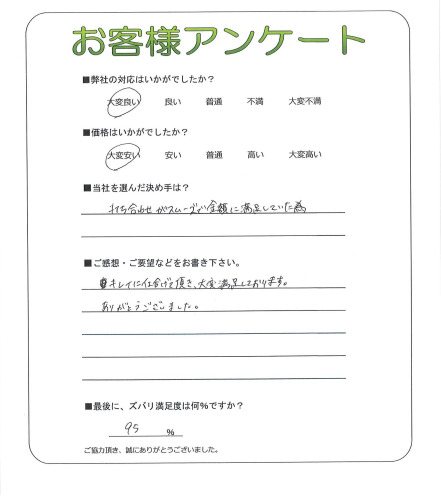 お客様アンケート
■弊社の対応はいかがでしたか？
大変良い 良い 普通 不満 大変不満
■価格はいかがでしたか？
大変安い 安い 普通 高い 大変高い
■当社を選んだ決め手は？
打ち合わせがスムーズで金額に満足していた為
■ご感想・ご要望などをお書き下さい。
キレイに仕上げて頂き、大変満足しております。
ありがとうございました。
■最後に、ズバリ満足度は何%ですか？
95 %
ご協力頂き、誠にありがとうございました。